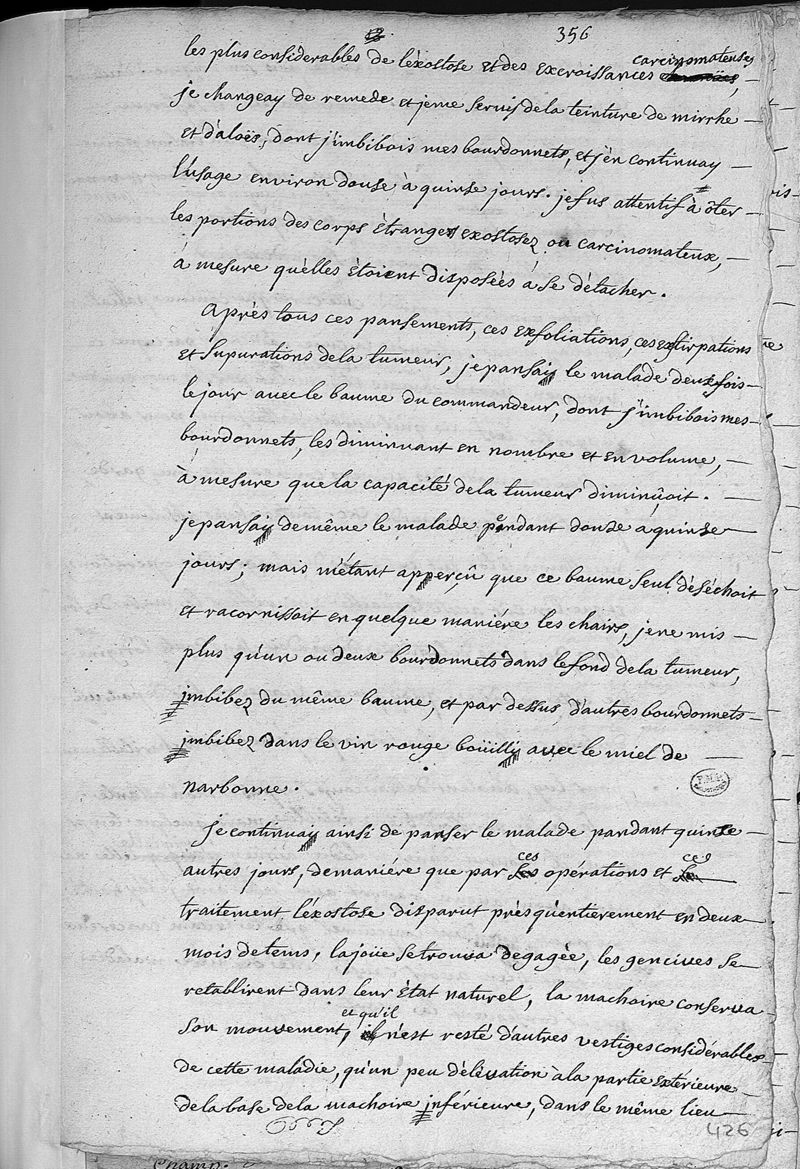 12 356
les plus considerables de l'éxostose et des excroissances carcinomateuses,
je changeay de remede et je me servis de la teinture de mirrhe
et d'aloës, dont j'imbibois mes bourdonnets, et j'en continuay
l'usage environ douse à quinse jours. je fus attentif à ôter
les portions des corps ètrangers exostosez ou carcinomateux,
à mesure qu'elles ètoient disposées à se détacher.
Après tous ces pansements, ces exfoliations, ces extirpations
et supurations de la tumeur, je pansay le malade deux fois
le jour avec le baume du commandeur, dont j'imbibois mes
bourdonnets, les diminuant en nombre et en volume,
à mesure que la capacité de la tumeur diminüoit.
je pansay de même le malade pendant douze à quinze
jours; mais m'étant apperçû que ce baume seul déséchoit
et racornissoit en quelque maniére les chairs, je ne mis
plus qu'un ou deux bourdonnets dans le fond de la tumeur,
imbibez du même baume, et par dessus d'autres bourdonnets
imbibez dans le vin rouge boüilli avec le miel de
narbonne.
P.M.R.
je continuay ainsi de panser le malade pandant quinze
autres jours, de maniére que par ces opérations et ce
traitement l'éxostose disparut prèsqu'entierement en deux
mois de tems, la joüe se trouva degagée, les gencives se
retablirent dans leur ètat naturel, la machoire conserva
son mouvement, et qu'il n'est resté d'autres vestiges considérables
de cette maladie, qu'un peu d'élèvation à la partie extérieure
de la base de la machoire inférieure, dans le même lieu
426